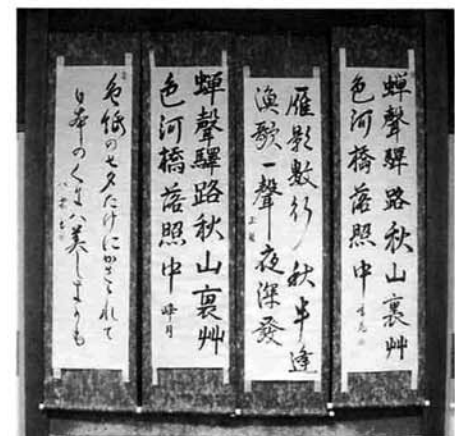 蝉聲驛路秋山裏艸
色河橋落照中
雁影數行秋半逢
漁歌一聲夜深發
蝉聲驛路秋山裏艸
色河橋落照中
峰月
色紙の七夕たけにかざられて
日本のくには美しきかも